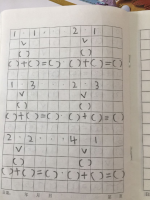 1 1 2 1
∨ ∨
( ) ( )
( )+( )=( ) ( )+( )=( )
1 3 2 3
∨ ∨
( ) ( )
( )+( )=( ) ( )+( )=( )
2 2 4 1
∨ ∨
( ) ( )
( )+( )=( ) ( )+( )=( )